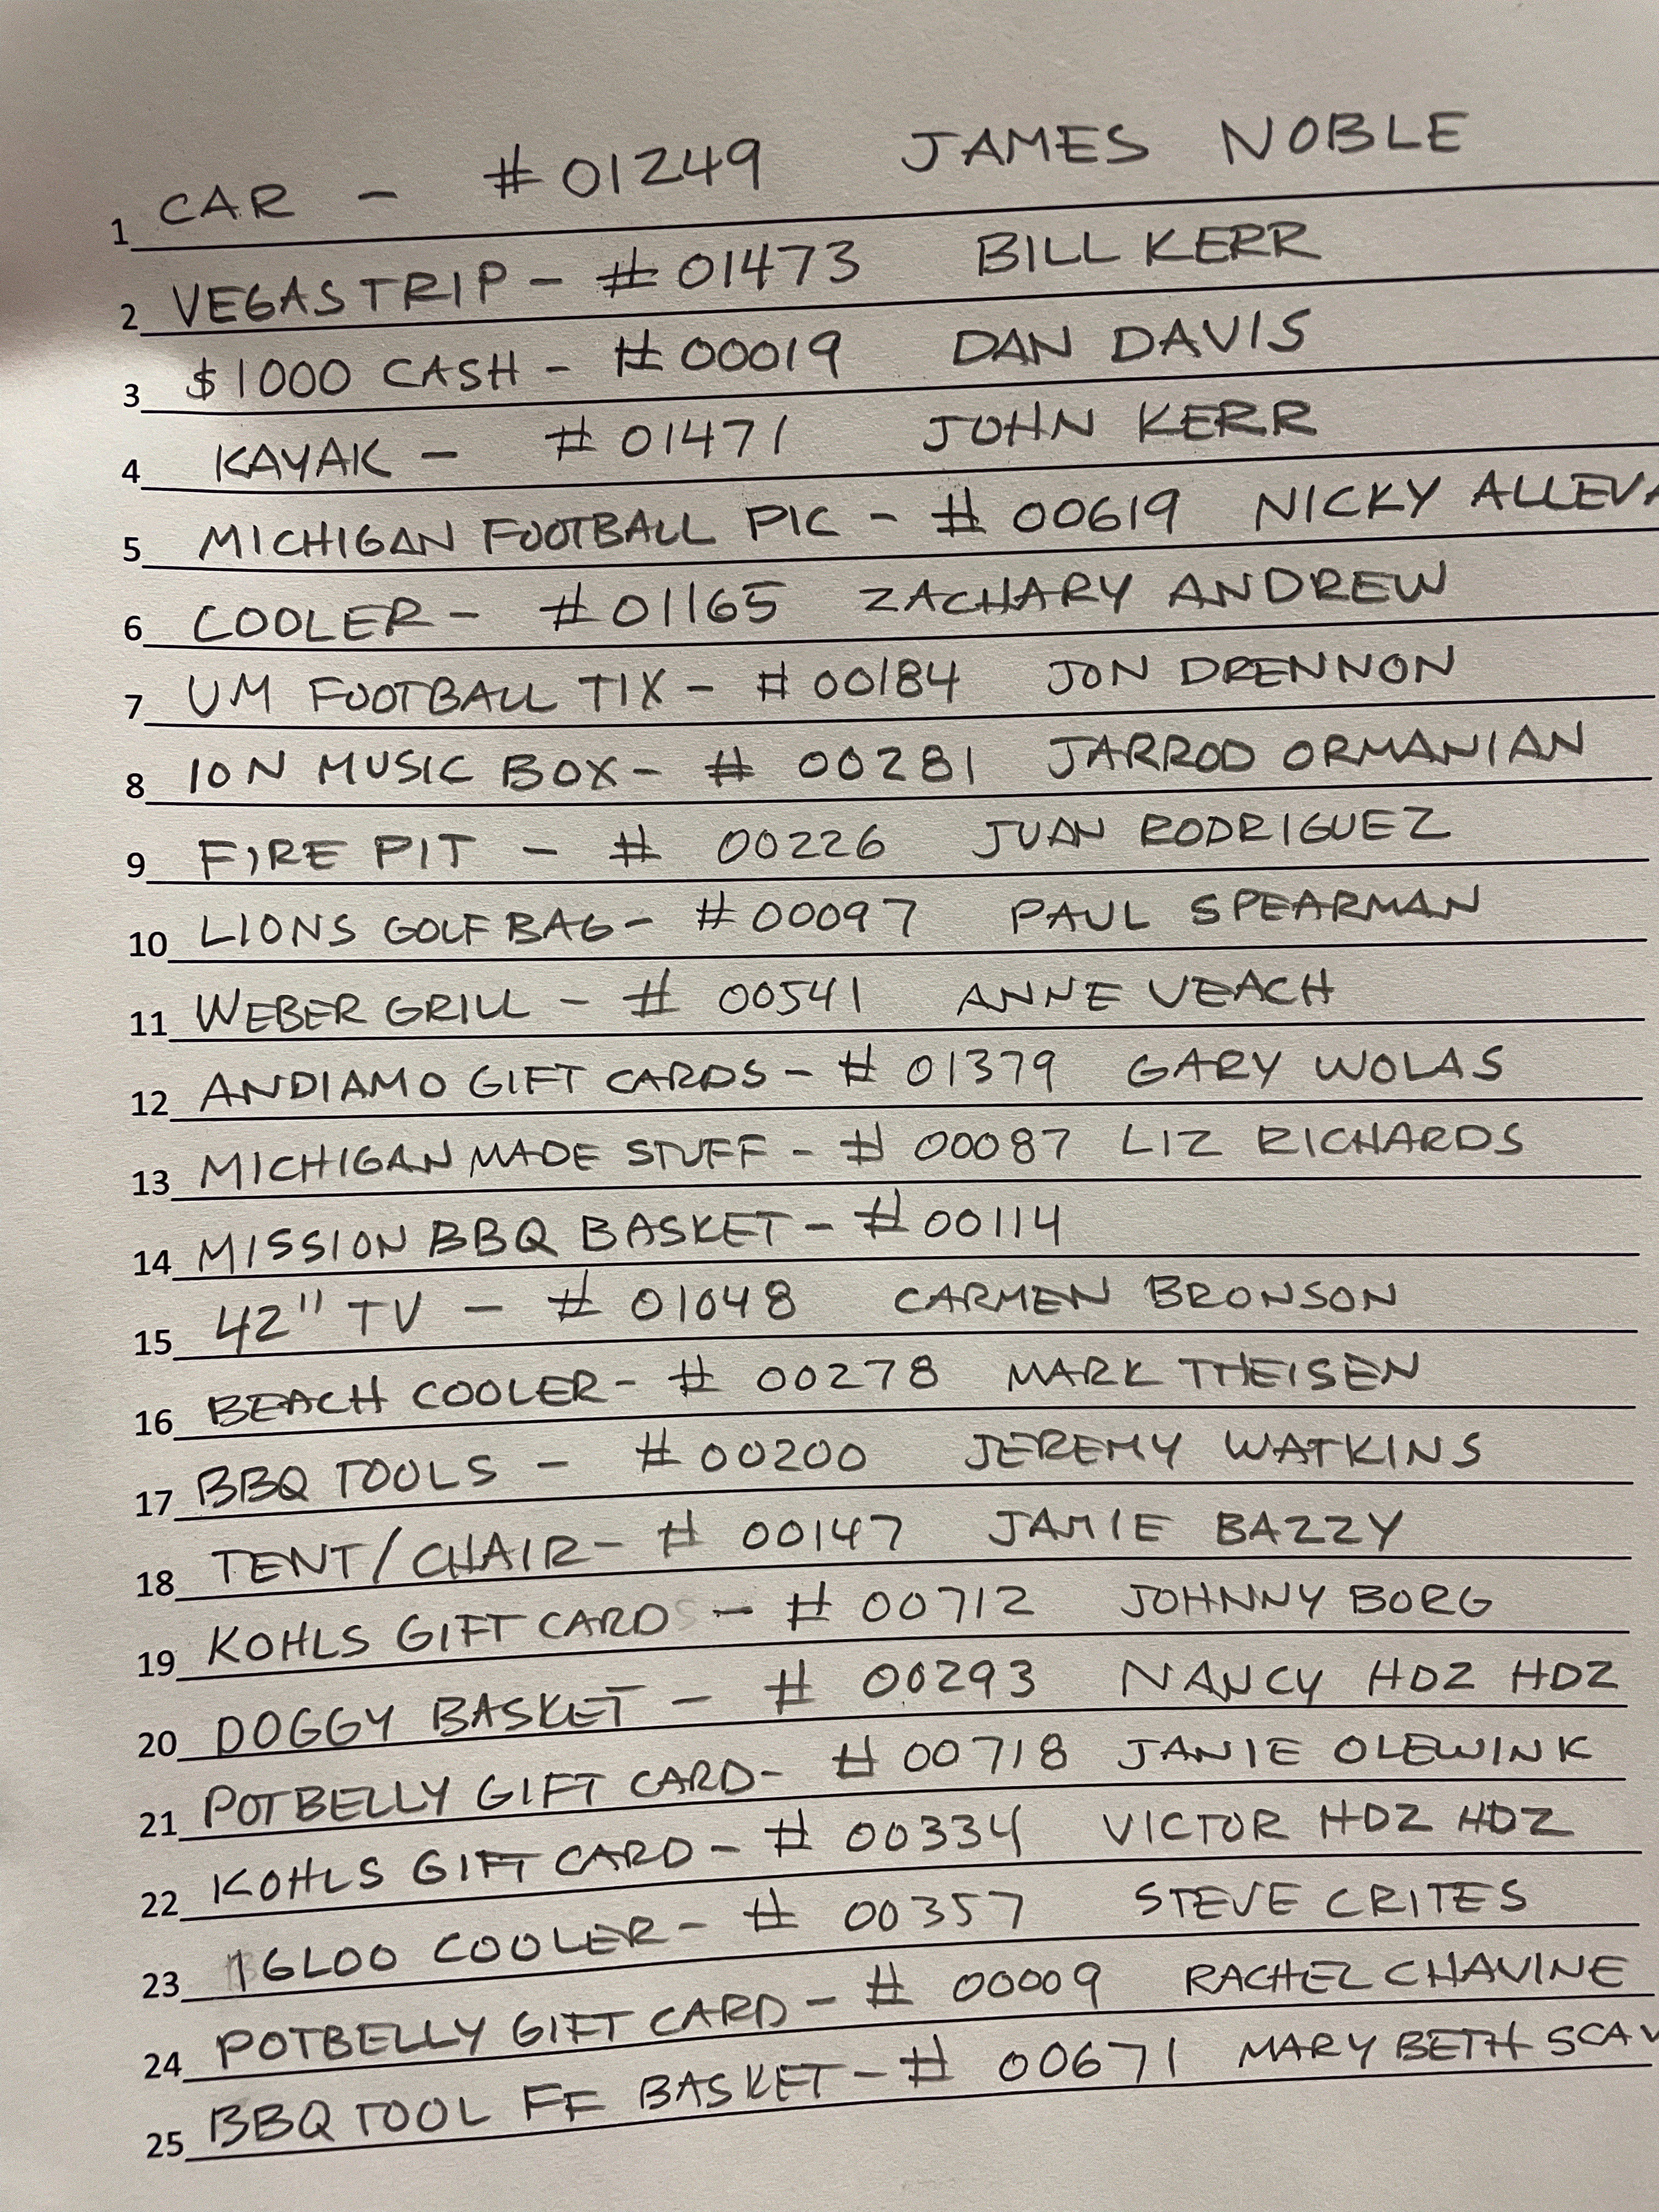 1 CAR - #01249 JAMES NOBLE
2 VEGAS TRIP - #01473 BILL KERR
3 $1000 CASH - #00019 DAN DAVIS
4 KAYAK - #01471 JOHN KERR
5 MICHIGAN FOOTBALL PIC - #00619 NICKY
6 COOLER - #01165 ZACHARY ANDREW
7 UM FOOTBALL TIX - #00184 JON DRENNON
8 ION MUSIC BOX - # 00281 JARROD ORMANIAN
9 FIRE PIT - # 00226 JUAN RODRIGUEZ
10 LIONS GOLF BAG - #00097 PAUL SPEARMAN
11 WEBER GRILL - # 00541 ANNE VEACH
12 ANDIAMO GIFT CARDS - # 01379 GARY WOLAS
13 MICHIGAN MADE STUFF - # 00087 LIZ RICHARDS
14 MISSION BBQ BASKET - #00114
15 42" TV - # 01048 CARMEN BRONSON
16 BEACH COOLER - # 00278 MARK THEISEN
17 BBQ TOOLS - #00200 JEREMY WATKINS
18 TENT/CHAIR - # 00147 JAMIE BAZZY
19 KOHLS GIFT CARDS - # 00712 JOHNNY BORG
20 DOGGY BASKET - # 00293 NANCY HDZ HDZ
21 POTBELLY GIFT CARD - # 00718 JANIE OLEWINK
22 KOHLS GIFT CARD - # 00334 VICTOR HDZ HDZ
23 IGLOO COOLER - # 00357 STEVE CRITES
24 POTBELLY GIFT CARD - # 00009 RACHEL CHAVINE
25 BBQ TOOL FF BASKET - # 00671 MARY BETH